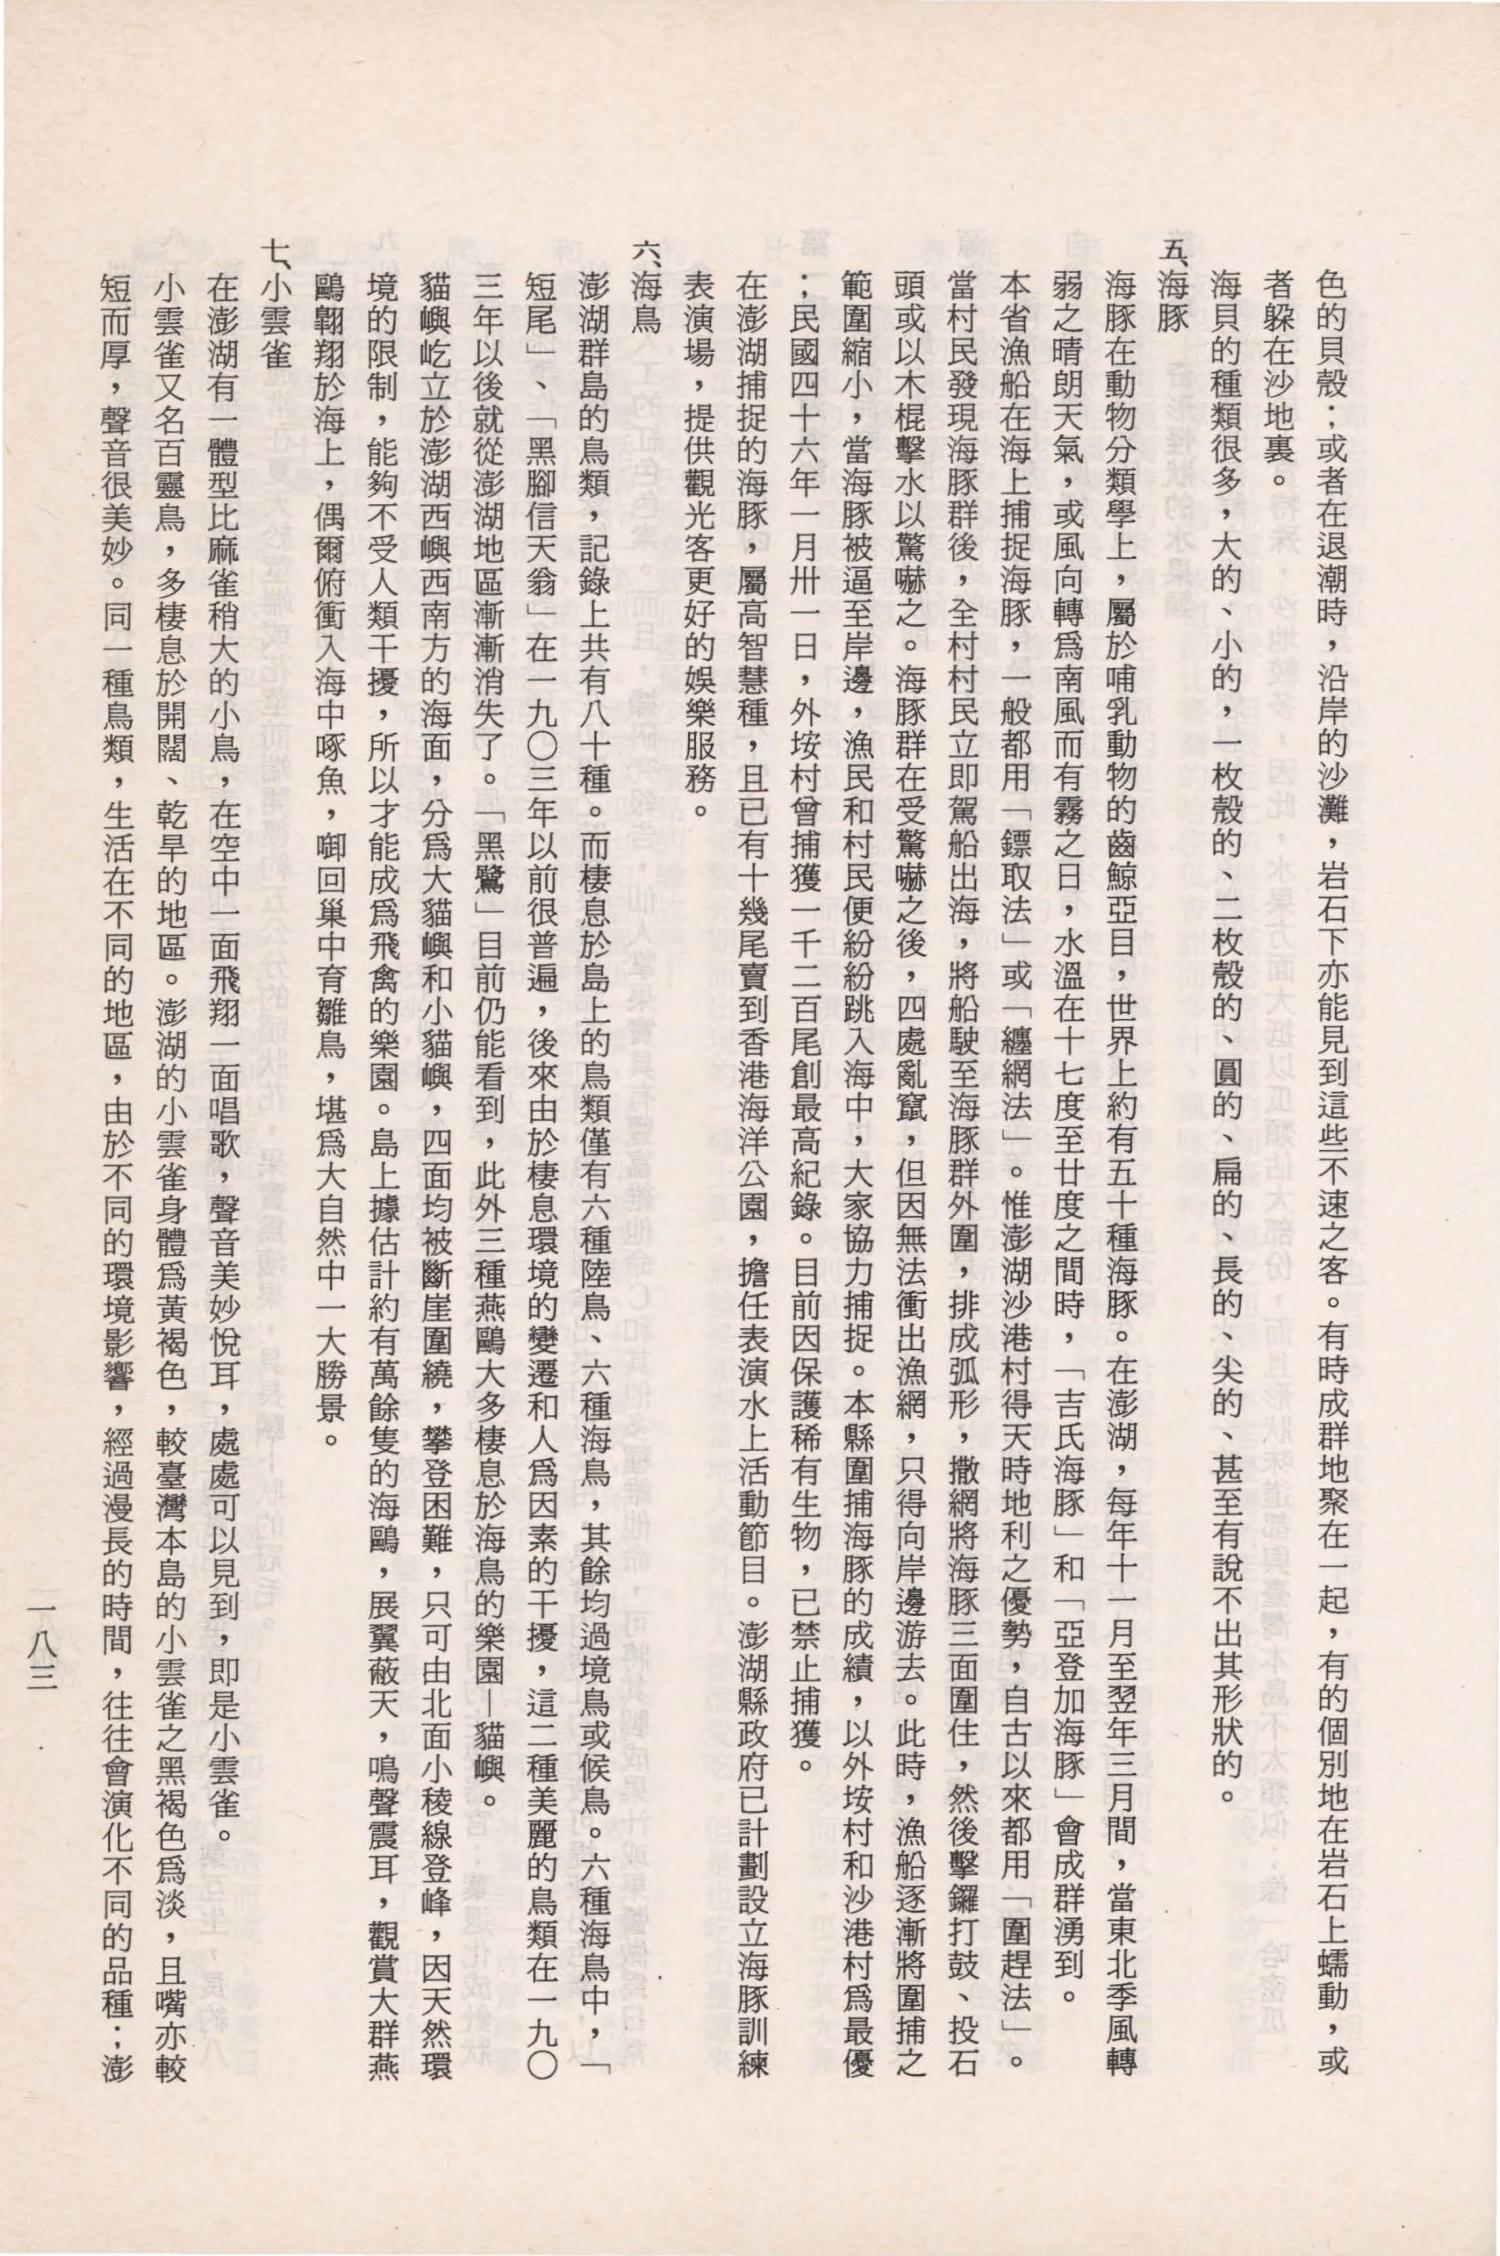 色的貝殼；或者在退潮時，沿岸的沙灘，岩石下亦能見到這些不速之客。有時成群地聚在一起，有的個別地在岩石上蠕動，或
者躲在沙地裏。
海貝的種類很多，大的、小的，一枚殼的、二枚殼的、圓的、扁的、長的、尖的、甚至有說不出其形狀的。
五、海豚
海豚在動物分類學上，屬於哺乳動物的齒鯨亞目，世界上約有五十種海豚。在澎湖，每年十一月至翌年三月間，當東北季風轉
弱之晴朗天氣，或風向轉爲南風而有霧之日，水溫在十七度至廿度之間時，「吉氏海豚」和「亞登加海豚」會成群湧到。
本省漁船在海上捕捉海豚，一般都用「鏢取法」或「纏網法」。惟澎湖沙港村得天時地利之優勢，自古以來都用「圍趕法」。
當村民發現海豚群後，全村村民立即駕船出海，將船駛至海豚群外圍，排成弧形，撒網將海豚三面圍住，然後擊鑼打鼓、投石
頭或以木棍擊水以驚嚇之。海豚群在受驚嚇之後，四處亂竄，但因無法衝出漁網，只得向岸邊游去。此時，漁船逐漸將圍捕之
範圍縮小，當海豚被逼至岸邊，漁民和村民便紛紛跳入海中，大家協力捕捉。本縣圍捕海豚的成績，以外垵村和沙港村爲最優
；民國四十六年一月卅一日，外垵村曾捕獲一千二百尾創最高紀錄。目前因保護稀有生物，已禁止捕獲。
在澎湖捕捉的海豚，屬高智慧種，且已有十幾尾賣到香港海洋公園，擔任表演水上活動節目。澎湖縣政府已計劃設立海豚訓練
表演場，提供觀光客更好的娛樂服務。
六、海鳥
澎湖群島的鳥類，記錄上共有八十種。而棲息於島上的鳥類僅有六種陸鳥、六種海鳥，其餘均過境鳥或候鳥。六種海鳥中，「
短尾」、「黑腳信天翁」在一九〇三年以前很普遍，後來由於棲息環境的變遷和人爲因素的干擾，這二種美麗的鳥類在一九〇
三年以後就從澎湖地區漸漸消失了。「黑鷺」目前仍能看到，此外三種燕鷗大多棲息於海鳥的樂園—貓嶼。
貓嶼屹立於澎湖西嶼西南方的海面，分爲大貓嶼和小貓嶼，四面均被斷崖圍繞，攀登困難，只可由北面小稜線登峰，因天然環
境的限制，能夠不受人類干擾，所以才能成爲飛禽的樂園。島上據估計約有萬餘隻的海鷗，展翼蔽天，鳴聲震耳，觀賞大群燕
鷗翱翔於海上，偶爾俯衝入海中啄魚，啣回巢中育雛鳥，堪爲大自然中一大勝景。
七、小雲雀
在澎湖有一體型比麻雀稍大的小鳥，在空中一面飛翔一面唱歌，聲音美妙悅耳，處處可以見到，即是小雲雀。
小雲雀又名百靈鳥，多棲息於開闊、乾旱的地區。澎湖的小雲雀身體爲黃褐色，較臺灣本島的小雲雀之黑褐色爲淡，且嘴亦較
短而厚，聲音很美妙。同一種鳥類，生活在不同的地區，由於不同的環境影響，經過漫長的時間，往往會演化不同的品種；澎
一八三